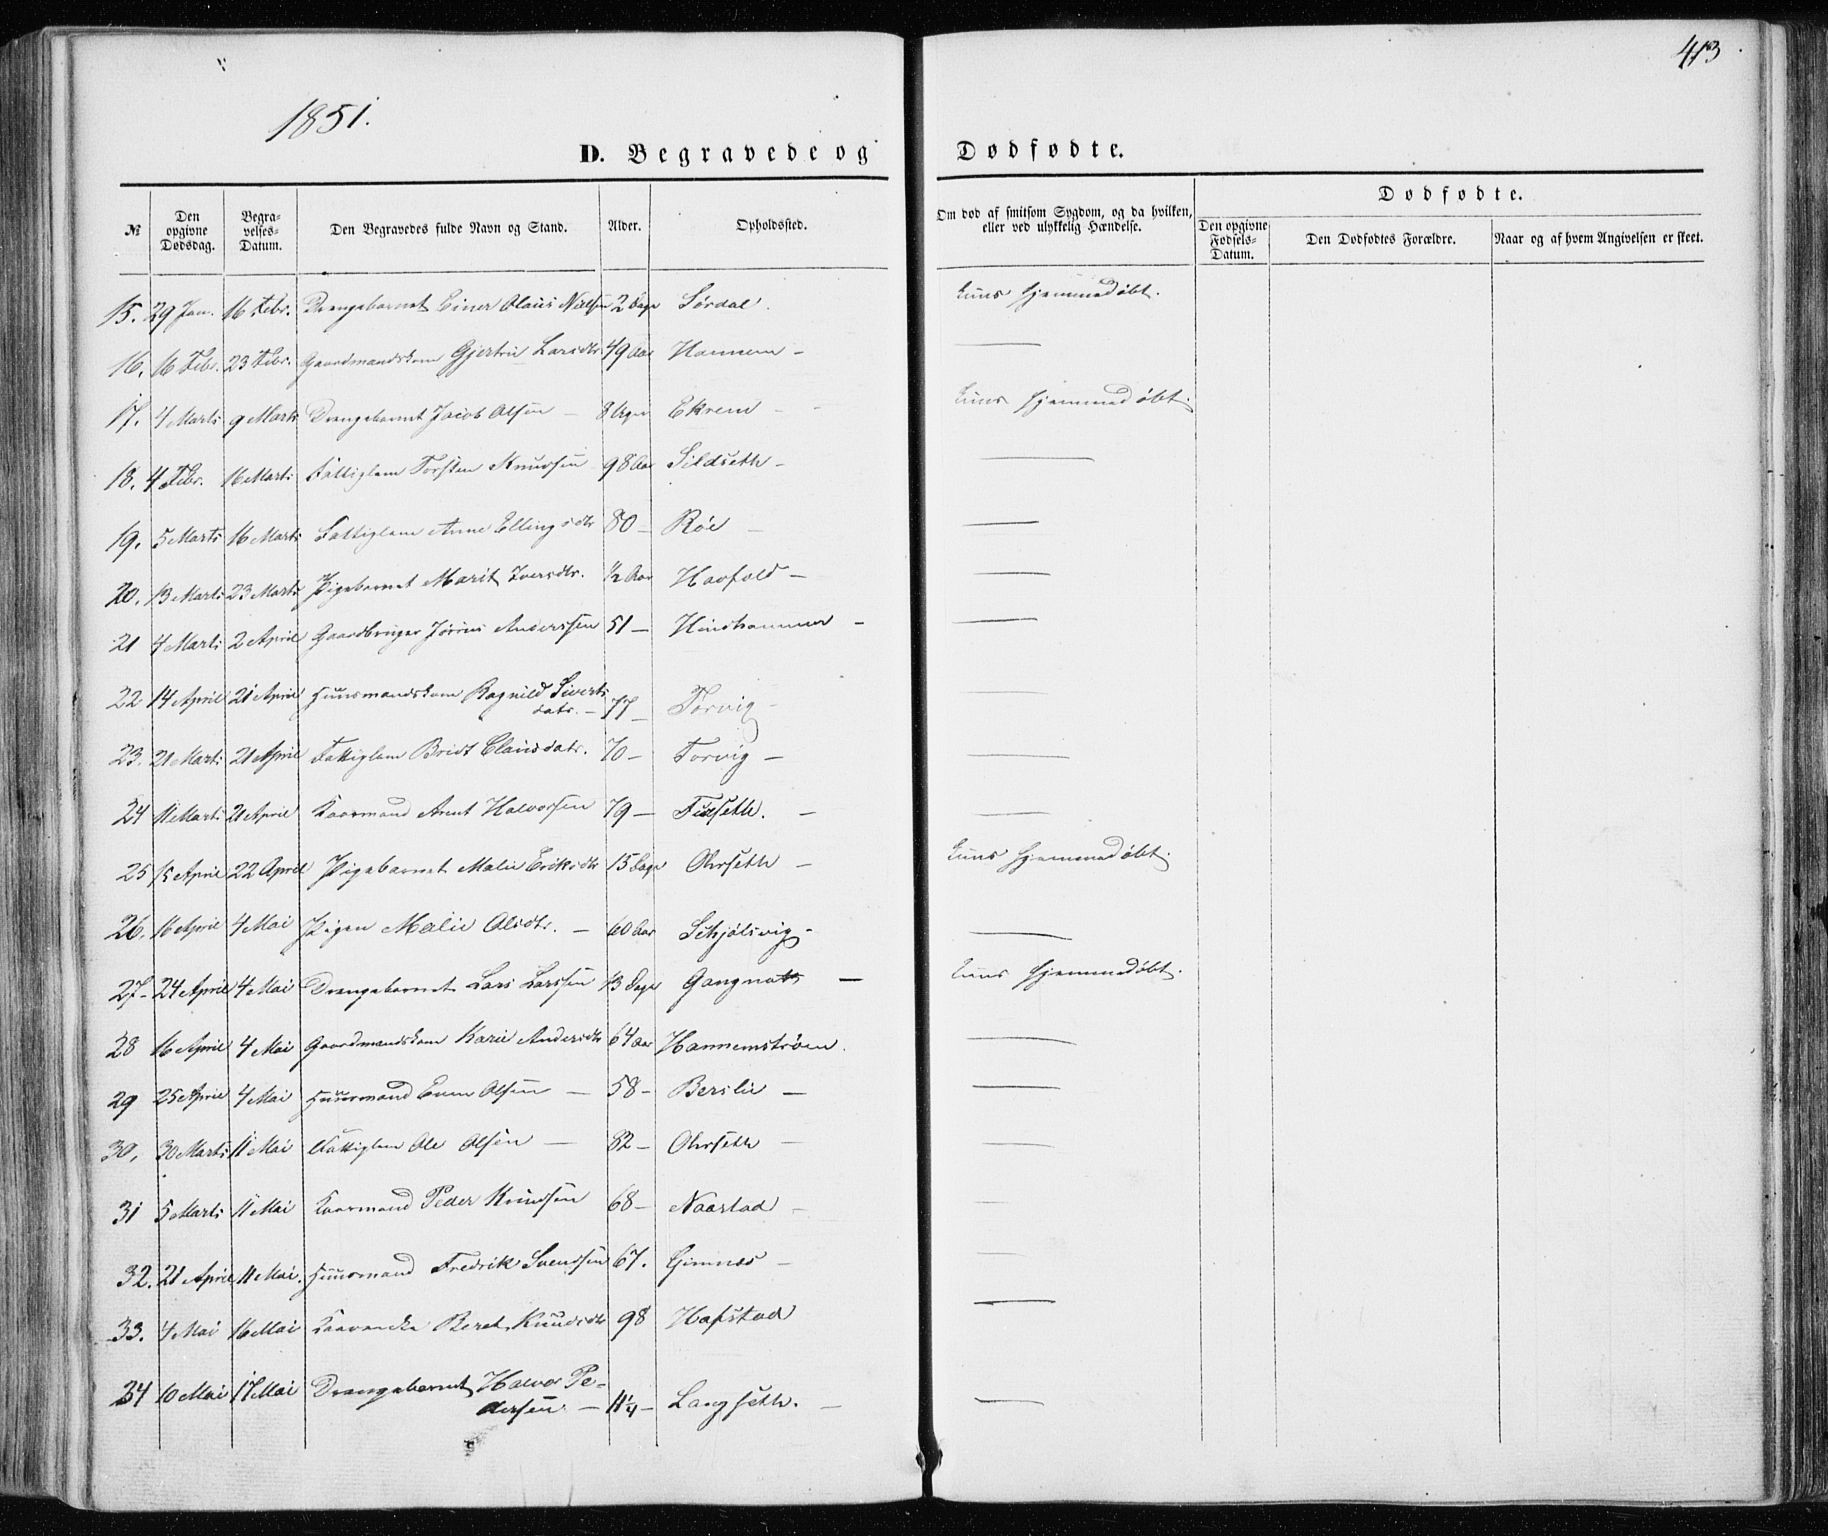 413
1851.
D. Begravede og Dødfødte.
№ Den opgivne Dødsdag. Begravelses-Datum. Den Begravedes fulde Navn og Stand. Alder. Opholdssted. Om død af smitsom Sygdom, og da hvilken, eller ved ulykkelig Hændelse. Dødfødte. Den opgivne Fødsels-Datum. Den Dødfødtes Forældre. Naar og af hvem Angivelsen er skeet.
15. 29 Jan. 16 Febr. Drengebarnet Einer Olaus Nielsen 2 Dage Sørdal. kuns hjemmedøbt.
16. 16 Febr. 23 Febr. Gaardmandskone Gjertrü Larsdtr 49 Aar Hannem –
17. 4 Marts 9 Marts Drengebarnet Jacob Olsen – 8 Uger Ekrem – kuns hjemmedøbt.
18. 4 Febr. 16 Marts Fattiglem Torsten Knudsen 98 Aar Sildseth –
19. 5 Marts 16 Marts Fattiglem Anne Ellingsdtr 80 – Röe –
20. 13 Marts 23 Marts Pigebarnet Marit Iversdtr. ½ Aar Havfold –
21 4 Marts 2 April Gaardbruger Jörius Anderssen 51 – Hindhammer –
22 14 April 21 April Huusmandskone Ragnild Siverts
datr. – 77 – Torvig –
23. 21 Marts 21 April Fattiglem Brit Clausdatr. 70 – Torvig –
24 11 Marts 21 April Kaarmand Arnt Halvorsen 79 – Fuxseth. –
25 15 April 22 April Pigebarnet Malie Eriksdtr 15 Dage Ohrseth – kuns hjemmedøbt.
26. 16 April 4 Mai Pigen Malie Olsdtr. – 60 Aar Schjølsvig –
27 – 24 April 4 Mai Drengebarnet Lars Larssen 13 Dage Gangnat – kuns hjemmedøbt.
28 16 April 4 Mai Gaardmandskone Karie Andersdtr 64 Aar Hannemstrøen.
29 25 April 4 Mai Huusmand Even Olsen – 58 – Berslie –
30, 30 Marts 11 Mai Fattiglem Ole Olsen – 82 – Ohrseth –
31 5 Marts 11 Mai Kaarmand Peder Knudsen 68 – Naastad –
32. 21 April 11 Mai. Huusmand Fredrik Svendsen 67. Gimnæs –
33. 4 Mai 16 Mai Kaarenke Beret Knudsdtr 98 Hafstad
34 10 Mai 17 Mai Drengebarnet Halvor Pe-
dersen. – 11¼ – Langseth. –